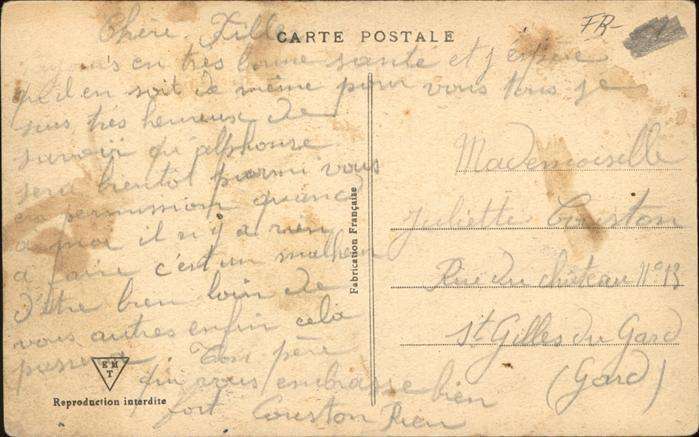 Chère Fille
CARTE POSTALE
FR-
suis en très bonne santé et j'espère
qu'il en soit de même pour vous tous je
suis très heureux de
savoir qu'alphonse
sera bientôt parmi vous
en permission quand
a moi il n'y a rien
a faire c'est un malheur
d'être bien loin de
vous autres enfin cela
passera
Ton père
qui vous embrasse bien
fort Couston
EMT
Reproduction interdite
Fabrication Française
Mademoiselle
Juliette Couston
Rue du château n° 13
St Gilles du Gard
(Gard)